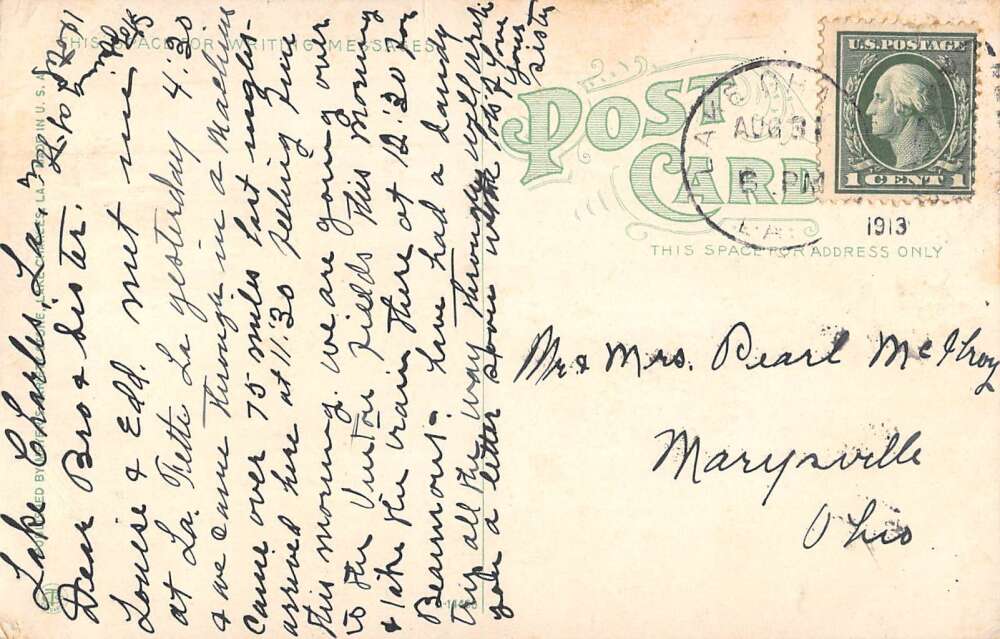 THIS SPACE FOR WRITING MESSAGES
POST CARD
THIS SPACE FOR ADDRESS ONLY
U.S. POSTAGE
1 CENT 1
LAKE CHARLES
AUG 31
PM
LA.
1913
Lake Charles, La,
Dear Bro & Sister.
Louise & Edd. met me
at La. Fette La yesterday 4.30
& we came through in a Machine
Came over 75 miles last night-
arrived here at 11:30 feeling fine
this morning. We are going over
to the Vinton fields This Morning
& take the train there at 12:30 for
Beaumont- have had a dandy
trip all the way through, will write
you a letter soon
Love
Your
Sister
Mr & Mrs. Pearl McIlroy
Marysville
Ohio